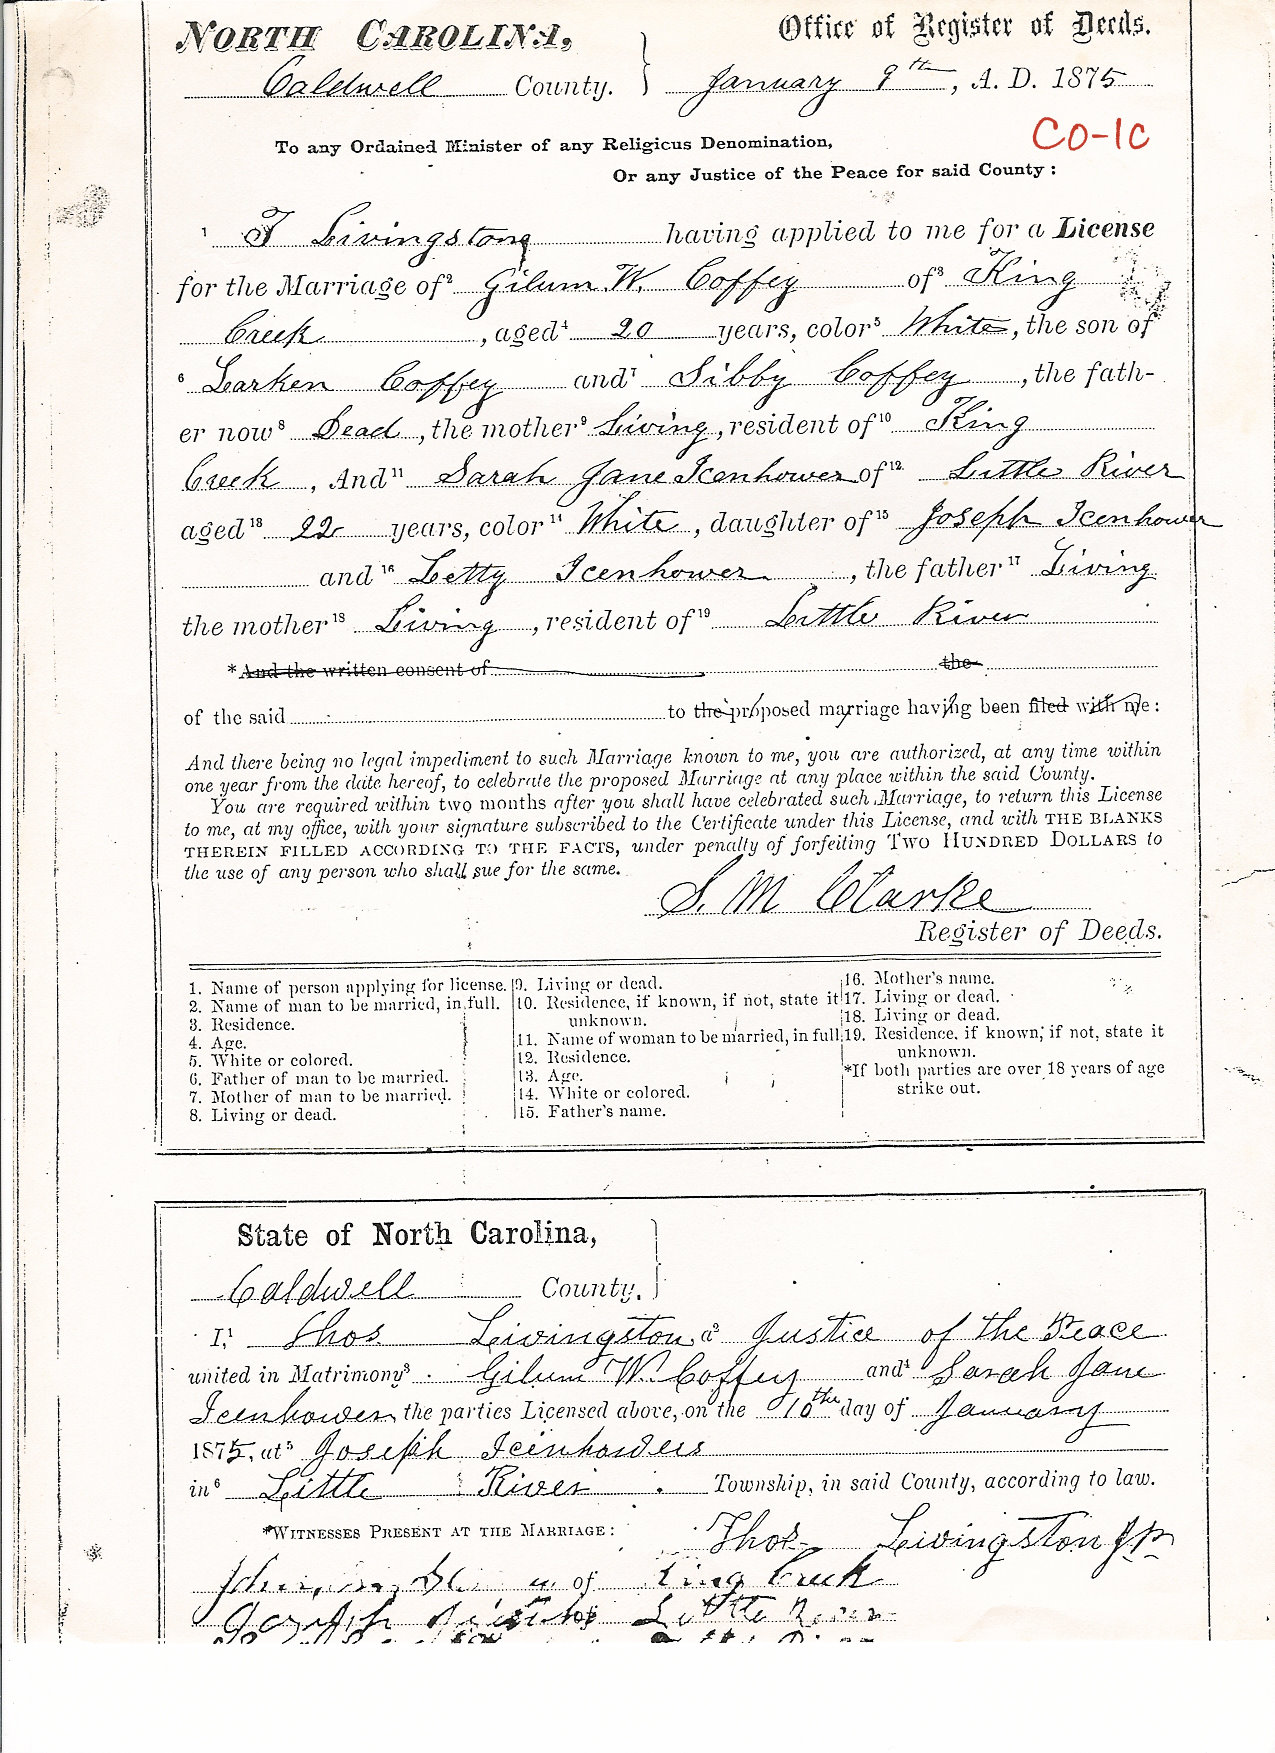 NORTH CAROLINA, Office of Register of Deeds.
Caldwell County. January 9th, A. D. 1875
CO-1C
To any Ordained Minister of any Religious Denomination,
Or any Justice of the Peace for said County:
1 T Livingston having applied to me for a License
for the Marriage of2 Gilum W. Coffey of3 King
Creek, aged4 20 years, color5 White, the son of
6 Larken Coffey and7 Sibby Coffey, the fath-
er now8 Dead, the mother9 Living, resident of10 King
Creek, And11 Sarah Jane Icenhower of12 Little River
aged13 22 years, color14 White, daughter of15 Joseph Icenhower
and16 Letty Icenhower, the father17 Living
the mother18 Living, resident of19 Little River
*And the written consent of the
of the said to the proposed marriage having been filed with me:
And there being no legal impediment to such Marriage known to me, you are authorized, at any time within
one year from the date hereof, to celebrate the proposed Marriage at any place within the said County.
You are required within two months after you shall have celebrated such Marriage, to return this License
to me, at my office, with your signature subscribed to the Certificate under this License, and with THE BLANKS
THEREIN FILLED ACCORDING TO THE FACTS, under penalty of forfeiting TWO HUNDRED DOLLARS to
the use of any person who shall sue for the same.
S. M Clarke
Register of Deeds.
1. Name of person applying for license.
2. Name of man to be married, in full.
3. Residence.
4. Age.
5. White or colored.
6. Father of man to be married.
7. Mother of man to be married.
8. Living or dead.
9. Living or dead.
10. Residence, if known, if not, state it
unknown.
11. Name of woman to be married, in full.
12. Residence.
13. Age.
14. White or colored.
15. Father's name.
16. Mother's name.
17. Living or dead.
18. Living or dead.
19. Residence, if known, if not, state it
unknown.
*If both parties are over 18 years of age
strike out.
State of North Carolina,
Caldwell County.
I,1 Thos Livingston a2 Justice of the Peace
united in Matrimony3 Gilum W. Coffey and4 Sarah Jane
Icenhower, the parties Licensed above, on the 10th day of January
1875, at5 Joseph Icenhowers
in6 Little River Township, in said County, according to law.
*WITNESSES PRESENT AT THE MARRIAGE: Thos Livingston J P
of King Creek
Joseph of Little River